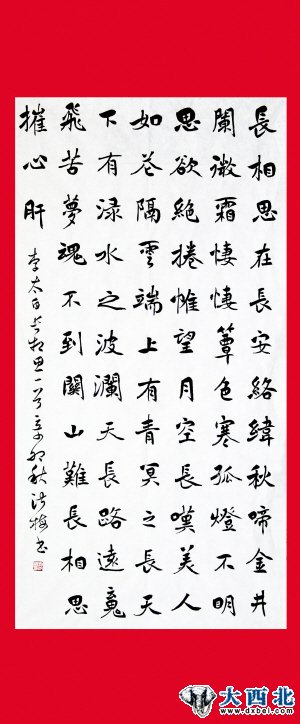 長相思在長安絡緯秋啼金井
闌微霜悽悽簟色寒孤燈不明
思欲絕捲帷望月空長嘆美人
如花隔雲端上有青冥之長天
下有淥水之波瀾天長路遠魂
飛苦夢魂不到關山難長相思
摧心肝
李太白長相思一首辛卯秋洪梅书
大西北
www.dxbei.com